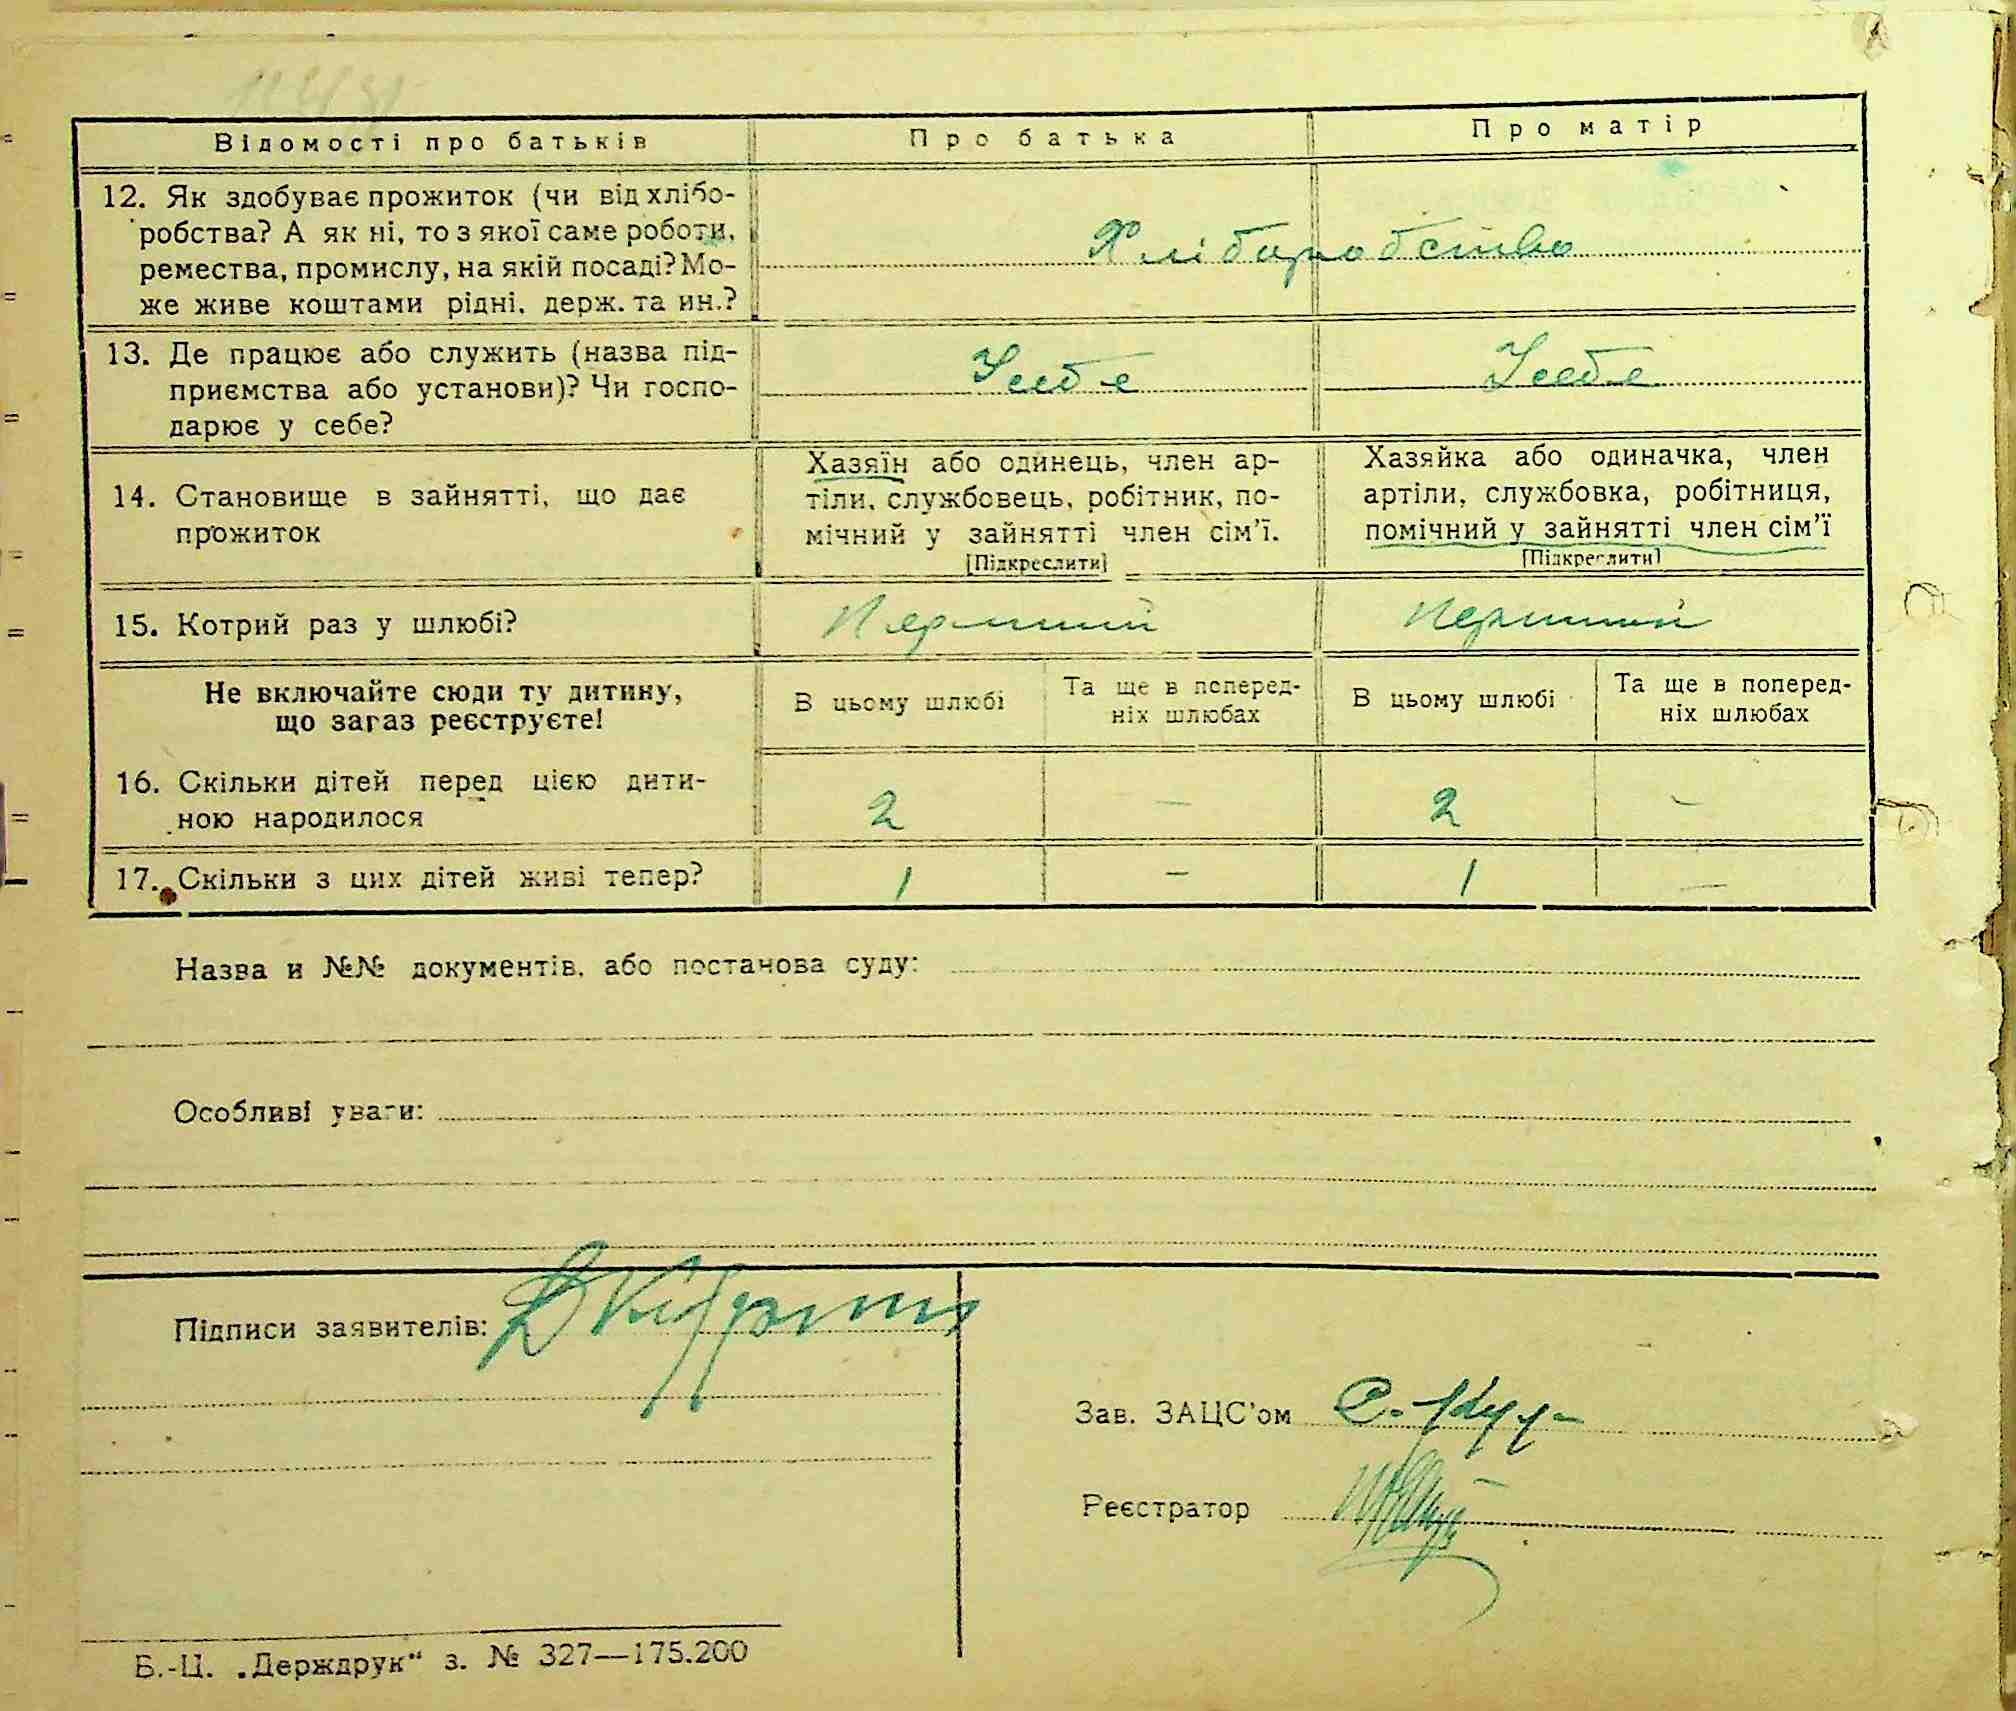 Відомості про батьків
Про батька
Про матір
12. Як здобуває прожиток (чи від хлібо-
робства? А як ні, то з якої саме роботи,
ремества, промислу, на якій посаді? Мо-
же живе коштами рідні, держ. та ин.?
Хліборобство
13. Де працює або служить (назва під-
приємства або установи)? Чи госпо-
дарює у себе?
У себе
У себе
14. Становище в зайнятті, що дає
прожиток
Хазяїн або одинець, член ар-
тіли, службовець, робітник, по-
мічний у зайнятті член сім’ї.
[Підкреслити]
Хазяйка або одиначка, член
артіли, службовка, робітниця,
помічний у зайнятті член сім’ї
[Підкреслити]
15. Котрий раз у шлюбі?
Перший
Перший
Не включайте сюди ту дитину,
що зараз реєструєте!
В цьому шлюбі
Та ще в поперед-
ніх шлюбах
В цьому шлюбі
Та ще в поперед-
ніх шлюбах
16. Скільки дітей перед цією дити-
ною народилося
2 — 2 —
17. Скільки з цих дітей живі тепер?
1 — 1 —
Назва и №№ документів, або постанова суду:
Особливі уваги:
Підписи заявителів:
Зав. ЗАЦС’ом
Реєстратор
Б.-Ц. „Держдрук“ з. № 327—175.200